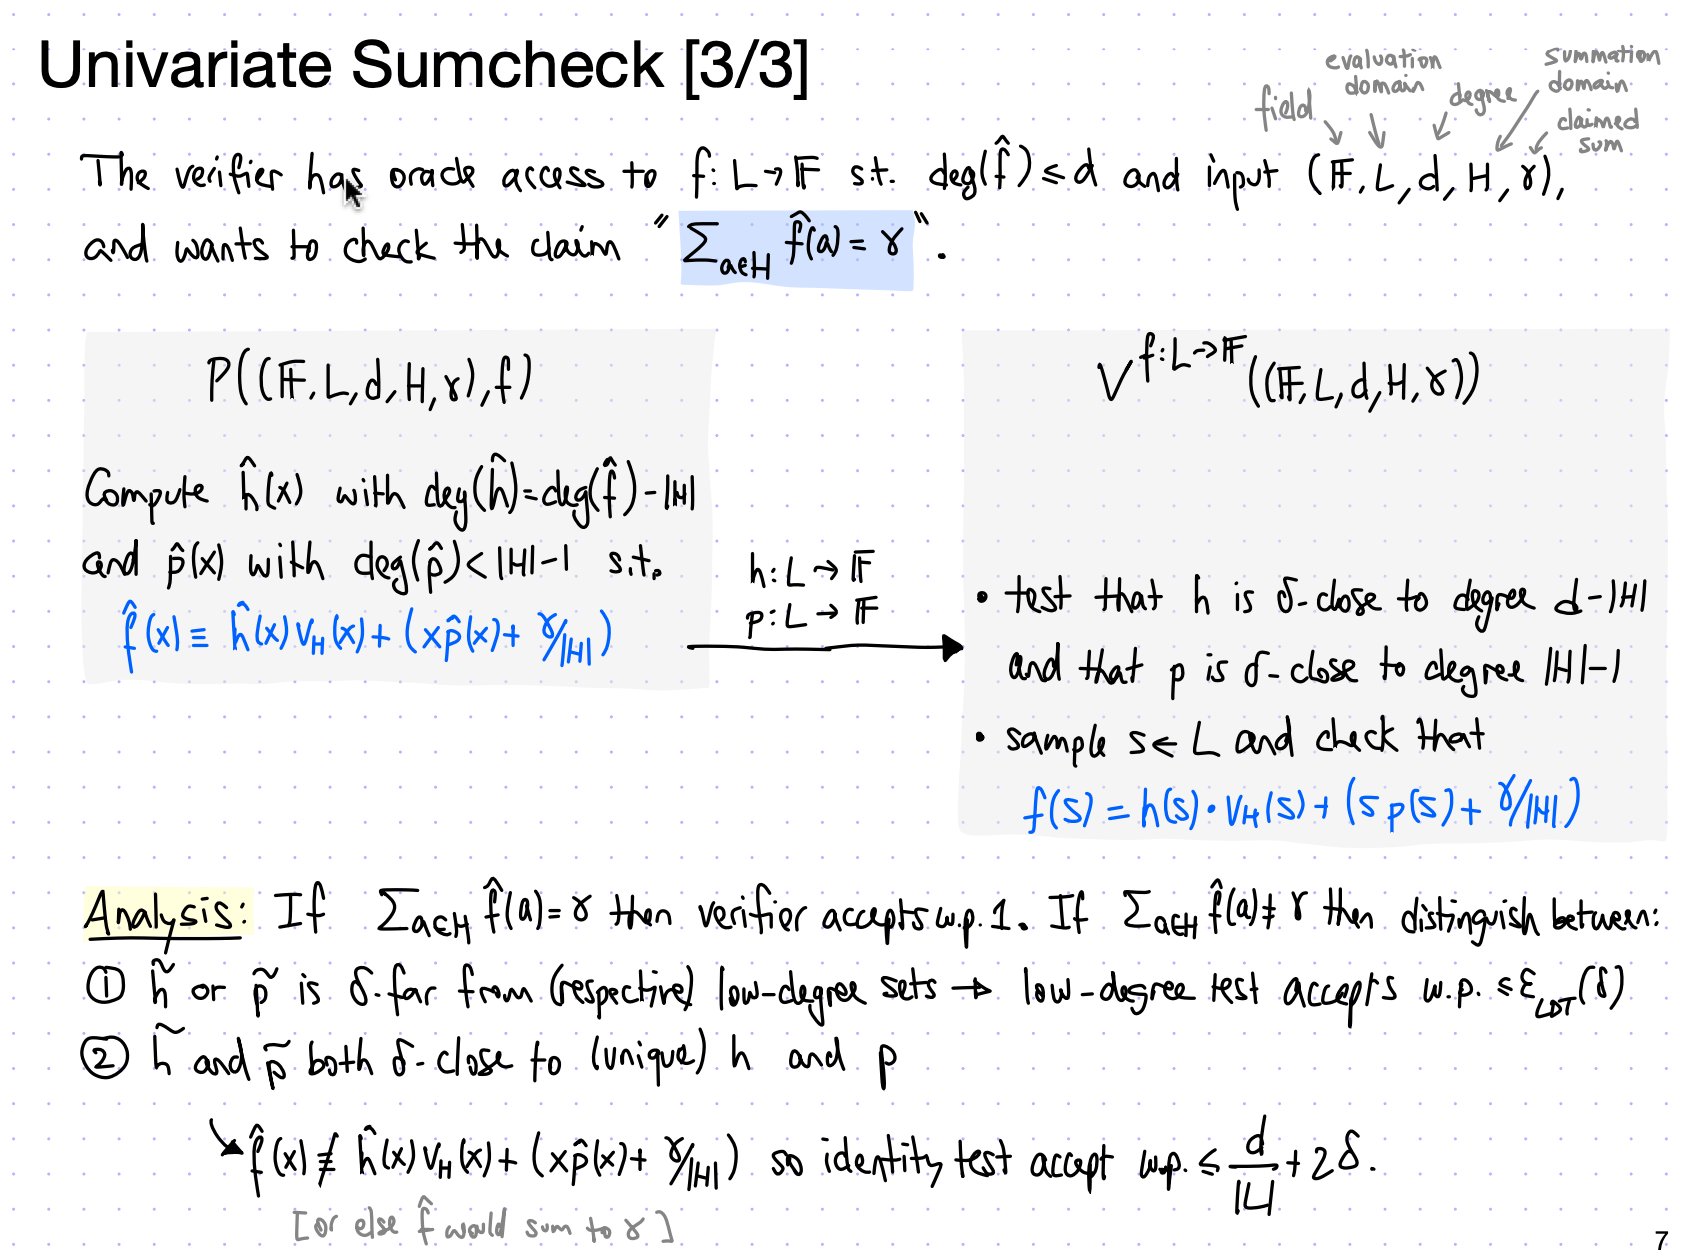 Univariate Sumcheck [3/3]
field evaluation domain degree summation domain claimed sum
The verifier has oracle access to f: L→𝔽 s.t. deg(f̂) ≤ d and input (𝔽, L, d, H, γ),
and wants to check the claim "∑_{a∈H} f̂(a) = γ".
P((𝔽, L, d, H, γ), f)
Compute ĥ(x) with deg(ĥ) = deg(f̂) - |H|
and p̂(x) with deg(p̂) < |H| - 1 s.t.
f̂(x) ≡ ĥ(x) v_H(x) + (x p̂(x) + γ/|H|)
h: L → 𝔽
p: L → 𝔽
V^{f: L→𝔽}((𝔽, L, d, H, γ))
• test that h is δ-close to degree d - |H|
and that p is δ-close to degree |H| - 1
• sample s ← L and check that
f(s) = h(s) · v_H(s) + (s p(s) + γ/|H|)
Analysis: If ∑_{a∈H} f̂(a) = γ then verifier accepts w.p. 1. If ∑_{a∈H} f̂(a) ≠ γ then distinguish between:
① h̃ or p̃ is δ-far from (respective) low-degree sets → low-degree test accepts w.p. ≤ ε_{LDT}(δ)
② h̃ and p̃ both δ-close to (unique) h and p
↘ f̂(x) ≢ ĥ(x) v_H(x) + (x p̂(x) + γ/|H|) so identity test accept w.p. ≤ d/|L| + 2δ.
[or else f̂ would sum to γ]
7